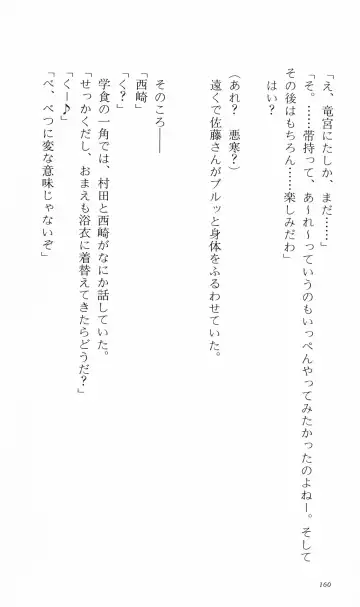 「え、竜宮にたしか、まだ……」
「そ。……帯持って、あ〜れ〜っていうのもいっぺんやってみたかったのよねー。そして
その後はもちろん……楽しみだわ」
はい？
遠くで佐藤さんがブルッと身体をふるわせていた。
（あれ？　悪寒？）
そのころ――
学食の一角では、村田と西崎がなにか話していた。
「西崎」
「く？」
「せっかくだし、おまえも浴衣に着替えてきたらどうだ？」
「くー♪」
「べ、べつに変な意味じゃないぞ」
160